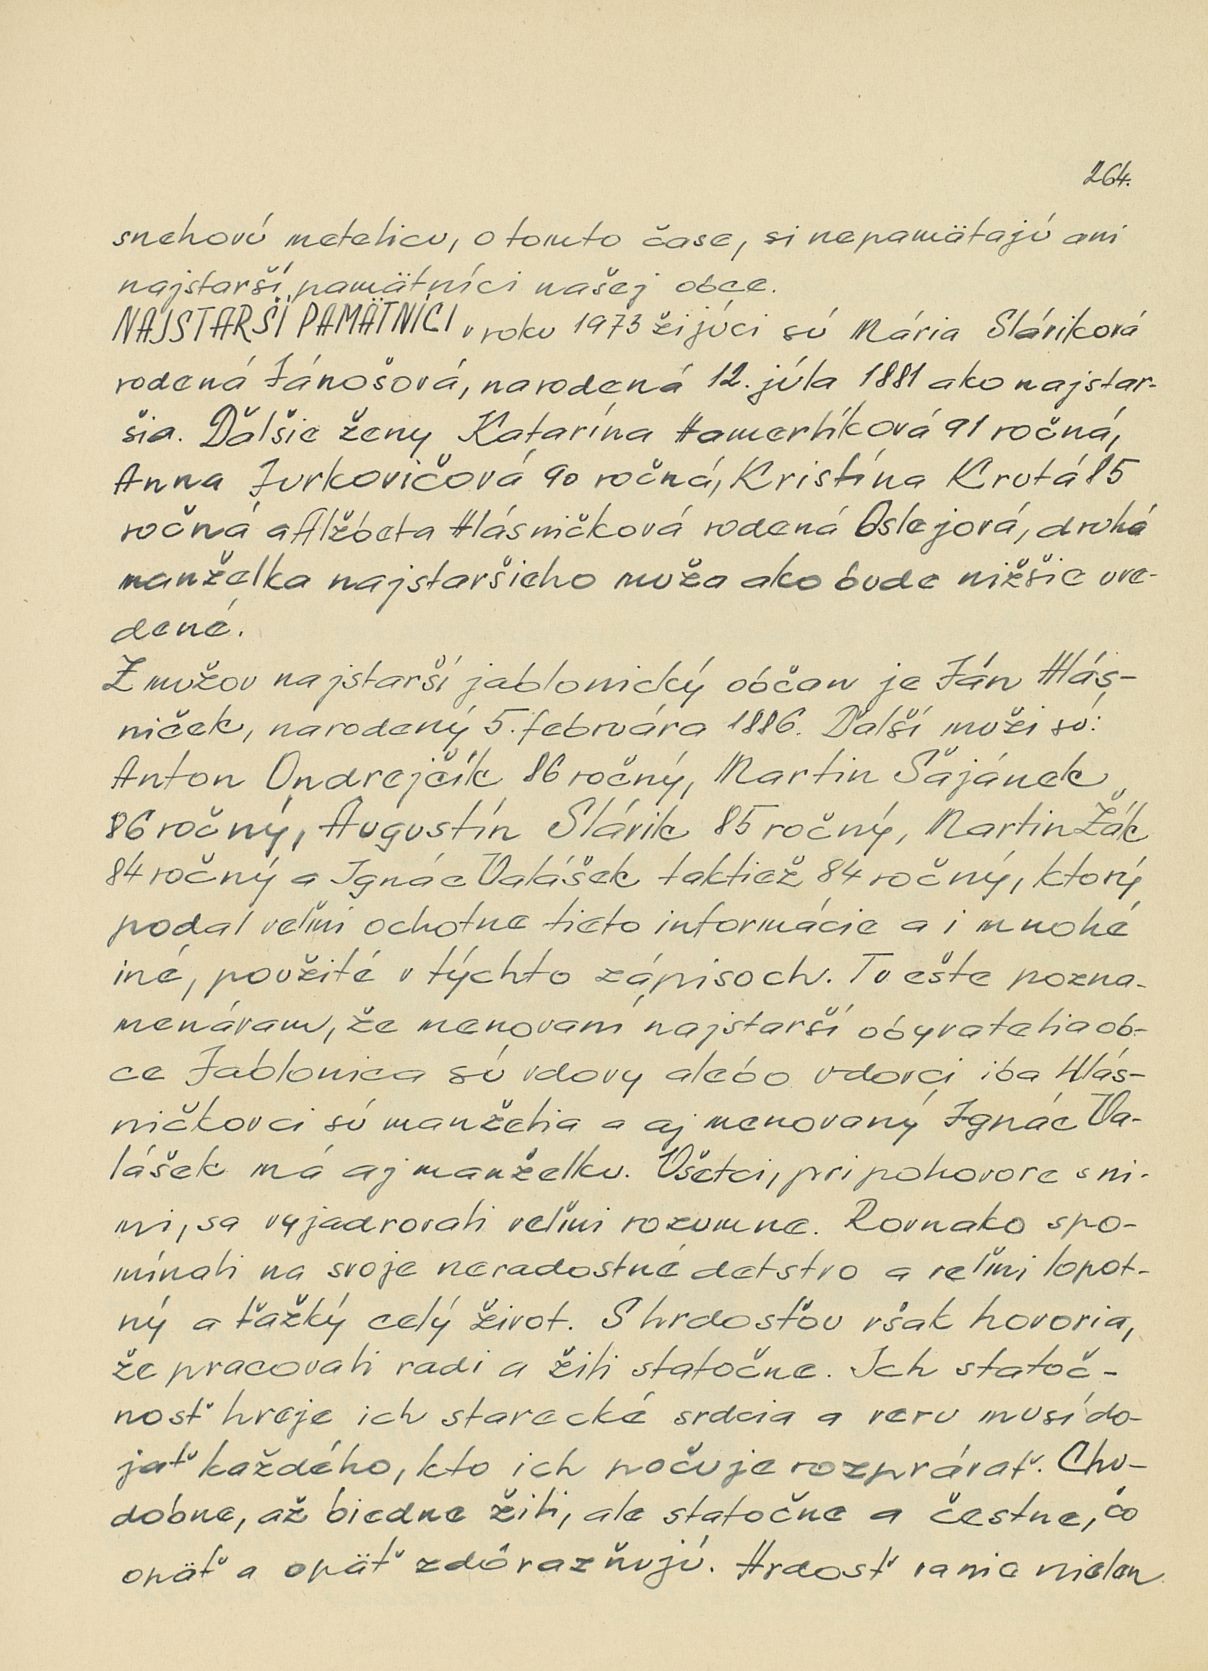 264.
snehovú metelicu, o tomto čase, si nepamätajú ani
najstarší pamätníci našej obce.
NAJSTARŠÍ PAMÄTNÍCI v roku 1973 žijúci sú Mária Sláriková
rodená Jánošová, narodená 12. júla 1881 ako najstar-
šia. Ďalšie ženy Katarína Hamerlíková 91 ročná,
Anna Jurkovičová 90 ročná, Kristína Krutá 85
ročná a Alžbeta Hlásničková rodená Oslejová, druhá
manželka najstaršieho muža ako bude nižšie uve-
dené.
Z mužov najstarší jablonický občan je Ján Hlás-
niček, narodený 5. februára 1886. Ďalší muži sú:
Anton Ondrejčík 86 ročný, Martin Šajánek
86 ročný, Augustín Slárik 85 ročný, Martin Žák
84 ročný a Ignác Valášek taktiež 84 ročný, ktorý
podal veľmi ochotne tieto informácie a i mnohé
iné, použité v týchto zápisoch. Tu ešte pozna-
menávam, že menovaní najstarší obyvatelia ob-
ce Jablonica sú vdovy alebo vdovci iba Hlás-
ničkovci sú manželia a aj menovaný Ignác Va-
lášek má aj manželku. Všetci, pri pohovore s ni-
mi, sa vyjadrovali veľmi rozumne. Rovnako spo-
mínali na svoje neradostné detstvo a veľmi lopot-
ný a ťažký celý život. S hrdosťou však hovoria,
že pracovali radi a žili statočne. Ich statoč-
nosť hreje ich starecké srdcia a veru musí do-
jať každého, kto ich počuje rozprávať. Chu-
dobne, až biedne žili, ale statočne a čestne, čo
opäť a opäť zdôrazňujú. Hrdosť vanie nielen